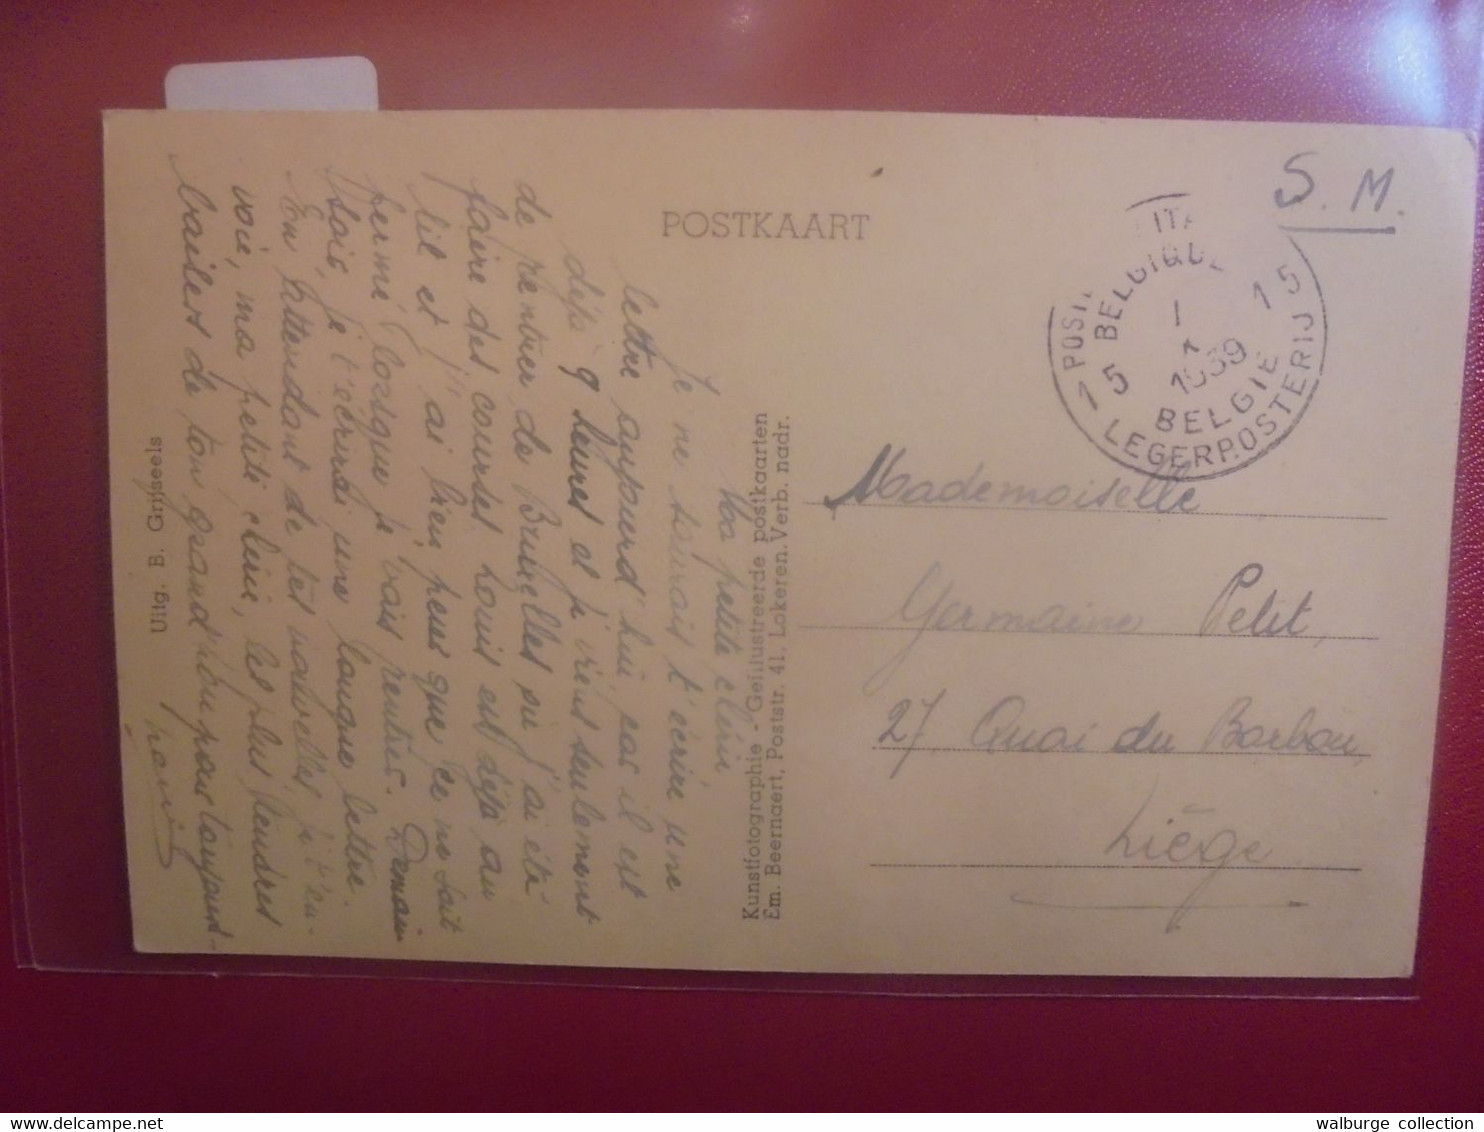 POSTKAART
S. M.
BELGIQUE
15 15
1
1939
BELGIE
LEGERPOSTERIJ
Ma petite chérie
Je ne saurais t'écrire une
lettre aujourd'hui car il est
déjà 9 heures et je viens seulement
de rentrer de Bruxelles où j'ai été
faire des courses. Louis est déjà au
lit et j'ai bien peur que ce ne soit
fermé lorsque je vais rentrer. Demain
soir, je t'écrirai une longue lettre.
En attendant de tes nouvelles je t'en-
voie, ma petite chérie, les plus tendres
baisers de ton grand pour toujours
Uitg. B. Grijseels
Kunstfotographie - Geillustreerde postkaarten
Em. Beernaert, Poststr. 41, Lokeren. Verb. nadr.
Mademoiselle
Germaine Petit,
27, Quai du Barbou,
Liège
walburge collection